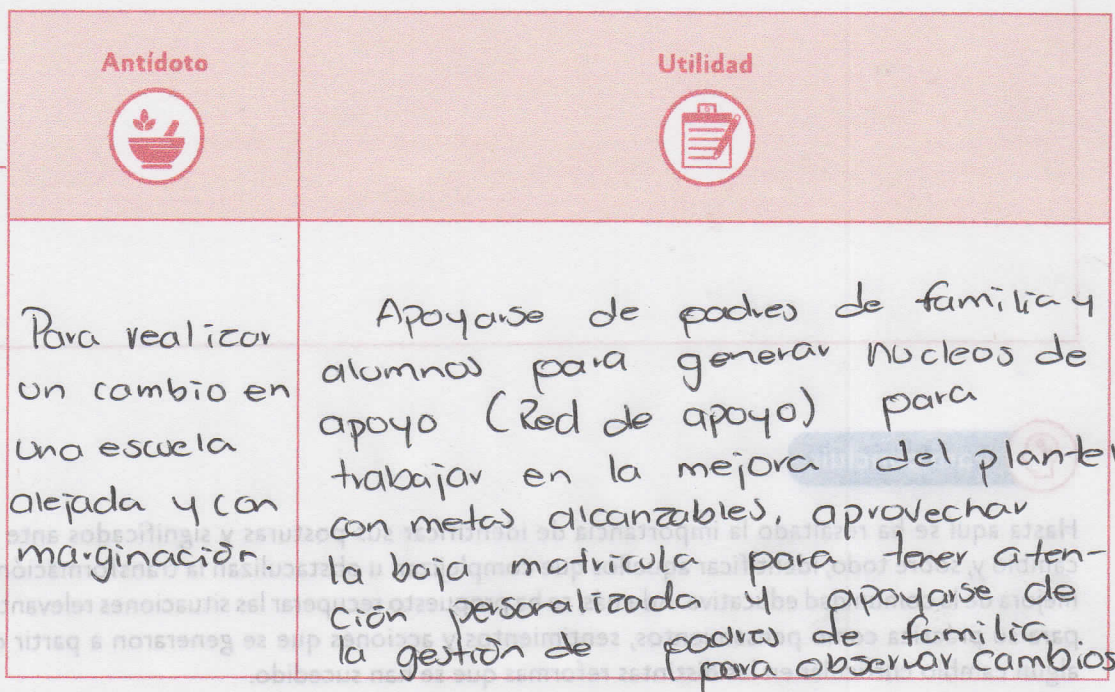 Antídoto
Utilidad
Para realizar
un cambio en
una escuela
alejada y con
marginación.
Apoyarse de padres de familia y
alumnos para generar nucleos de
apoyo (Red de apoyo) para
trabajar en la mejora del plantel
con metas alcanzables, aprovechar
la baja matricula para tener aten-
ción personalizada y apoyarse de
la gestión de padres de familia
para observar cambios